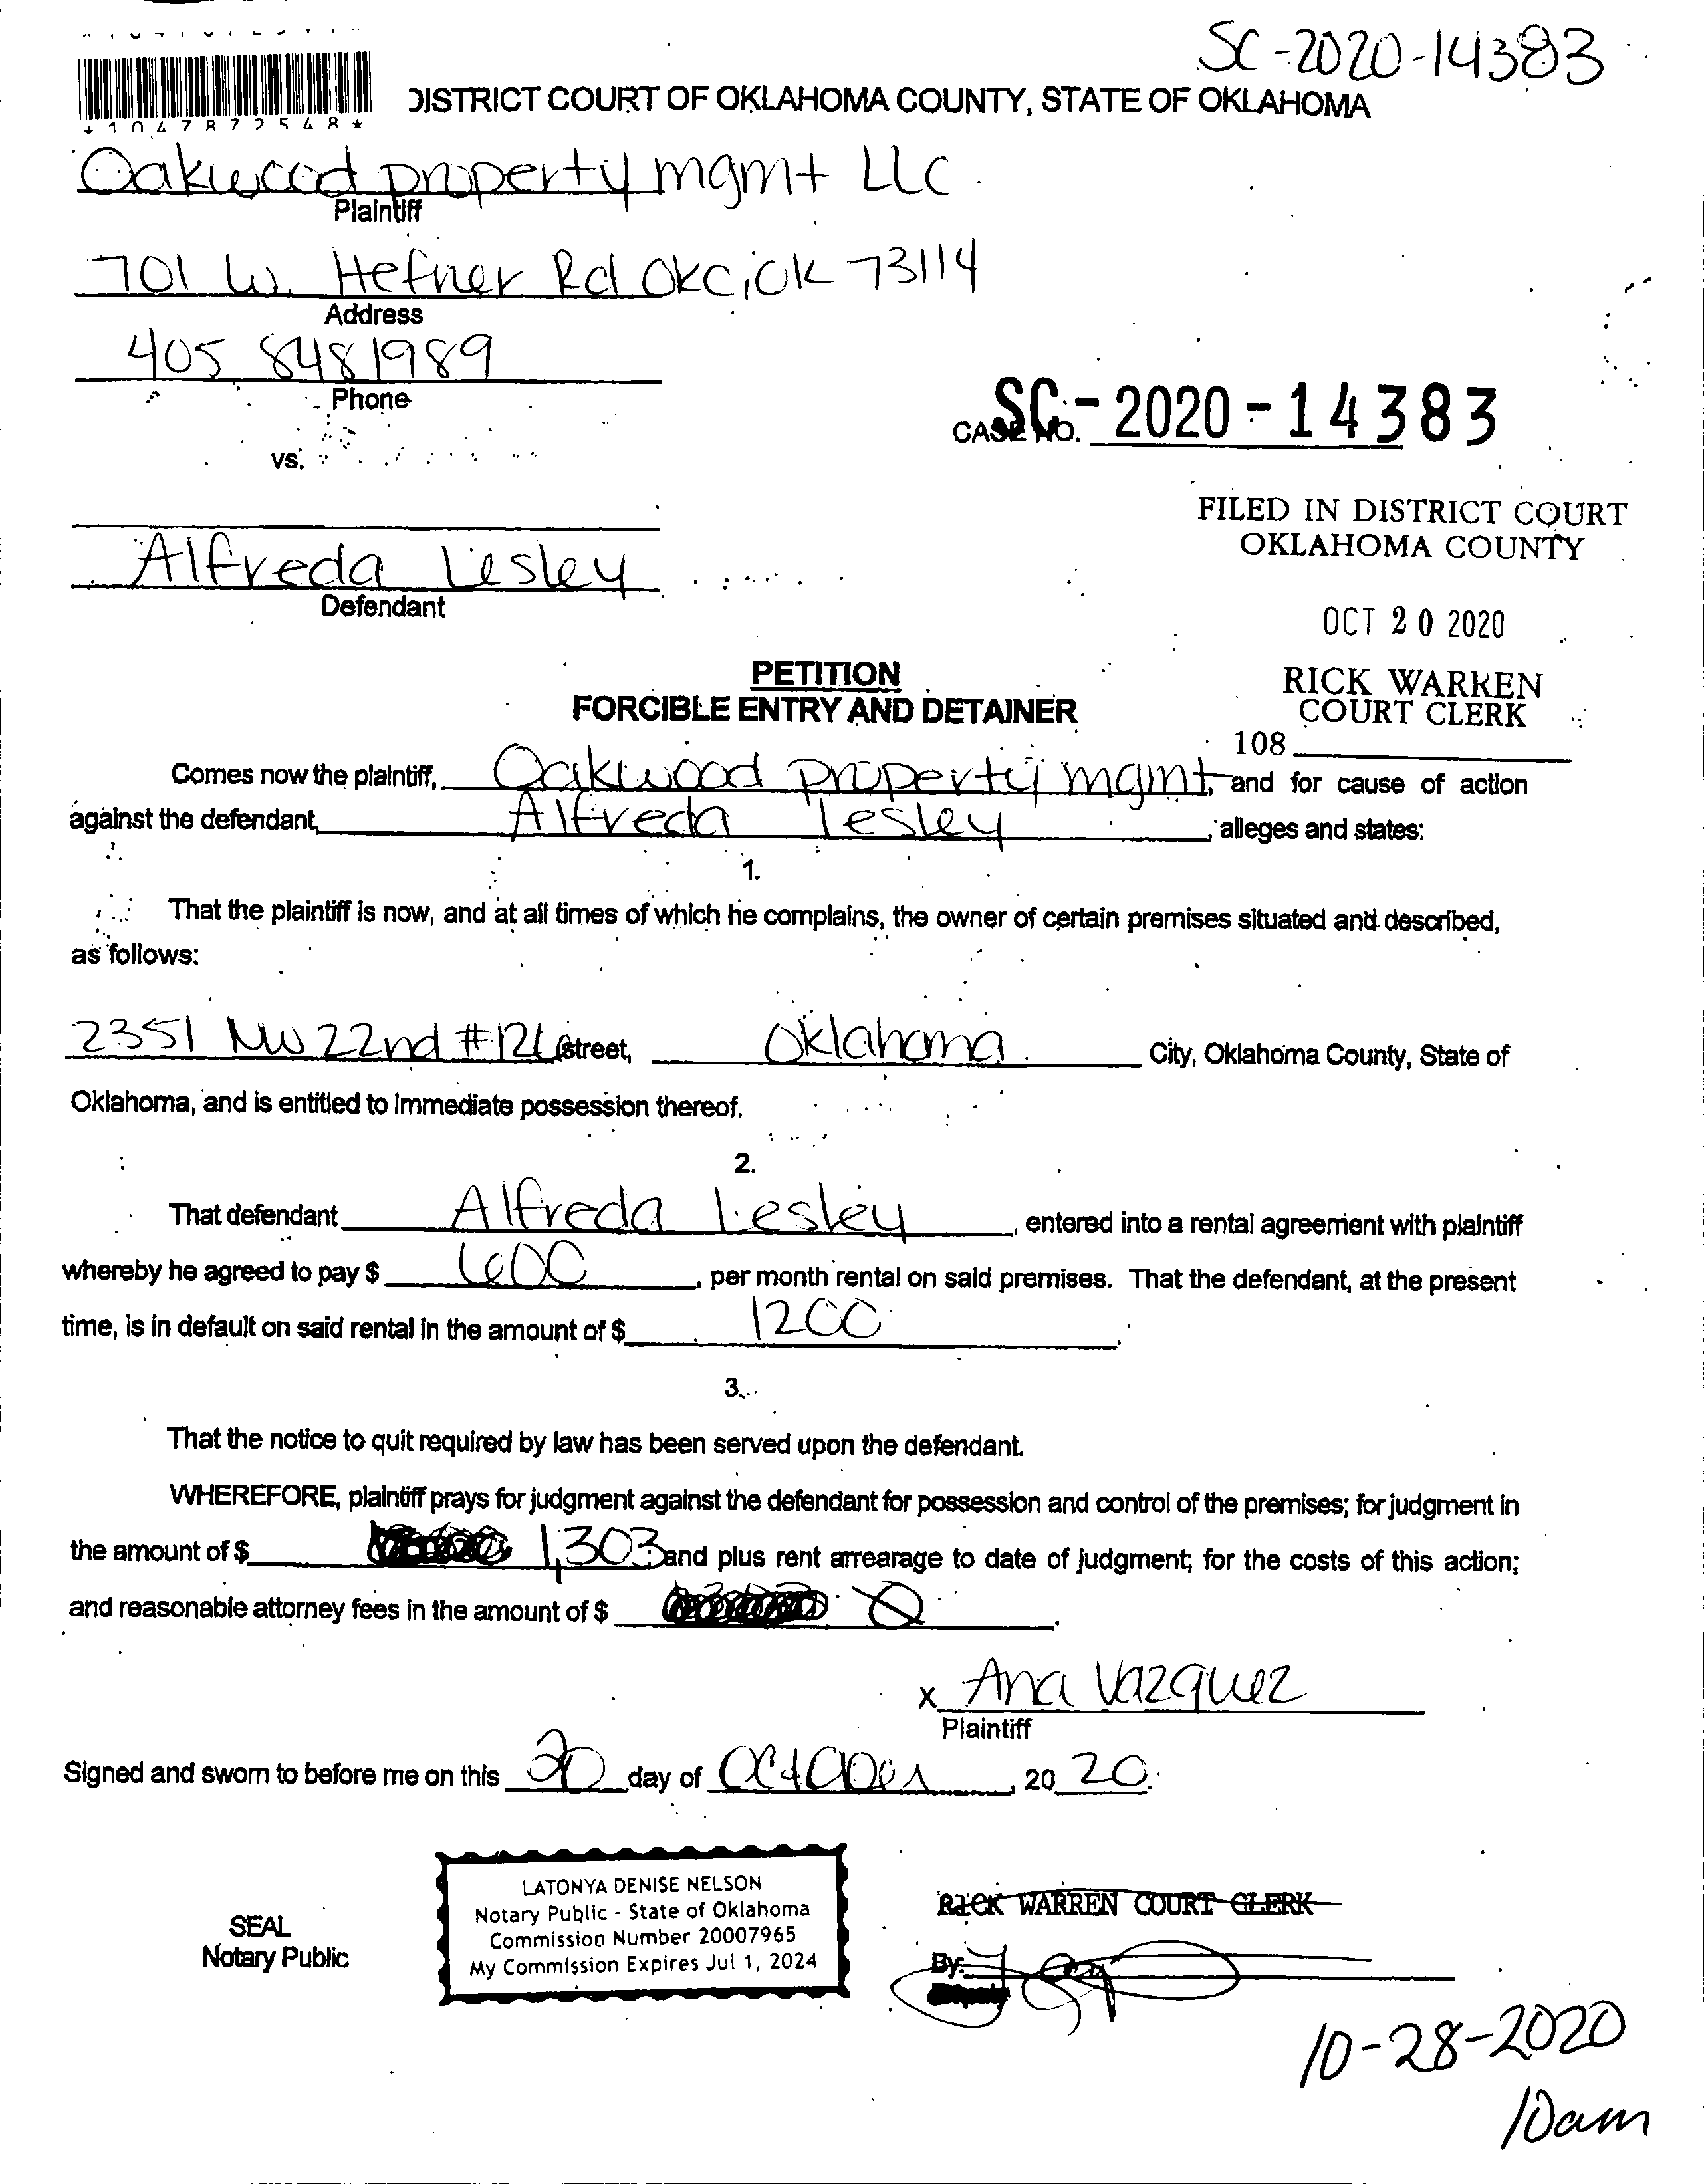 SC-2020-14383
*1047872548*
DISTRICT COURT OF OKLAHOMA COUNTY, STATE OF OKLAHOMA
Oakwood property mgmt LLC
Plaintiff
701 W. Hefner Rd OKC, OK 73114
Address
405 848 1989
Phone
SC-2020-14383
CASE NO.
vs.
FILED IN DISTRICT COURT
OKLAHOMA COUNTY
Alfreda Lesley
Defendant
OCT 20 2020
PETITION
FORCIBLE ENTRY AND DETAINER
RICK WARREN
COURT CLERK
108
Comes now the plaintiff, Oakwood property mgmt, and for cause of action
against the defendant, Alfreda Lesley, alleges and states:
1.
That the plaintiff is now, and at all times of which he complains, the owner of certain premises situated and described,
as follows:
2351 NW 22nd #126 street, Oklahoma City, Oklahoma County, State of
Oklahoma, and is entitled to immediate possession thereof.
2.
That defendant Alfreda Lesley, entered into a rental agreement with plaintiff
whereby he agreed to pay $ 600, per month rental on said premises. That the defendant, at the present
time, is in default on said rental in the amount of $ 1200.
3.
That the notice to quit required by law has been served upon the defendant.
WHEREFORE, plaintiff prays for judgment against the defendant for possession and control of the premises; for judgment in
the amount of $ 1,303 and plus rent arrearage to date of judgment; for the costs of this action;
and reasonable attorney fees in the amount of $ 0.
x Ana Vazquez
Plaintiff
Signed and sworn to before me on this 20 day of October, 20 20.
SEAL
Notary Public
LATONYA DENISE NELSON
Notary Public - State of Oklahoma
Commission Number 20007965
My Commission Expires Jul 1, 2024
RICK WARREN COURT CLERK
By:
Deputy
10-28-2020
10am